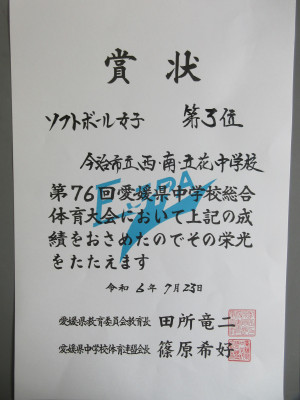 賞状
ソフトボール女子 第3位
今治市立西・南・立花中学校
第76回愛媛県中学校総合
体育大会において上記の成
績をおさめたのでその栄光
をたたえます
令和 6年 7月23日
愛媛県教育委員会教育長 田所竜二
愛媛県中学校体育連盟会長 篠原希好